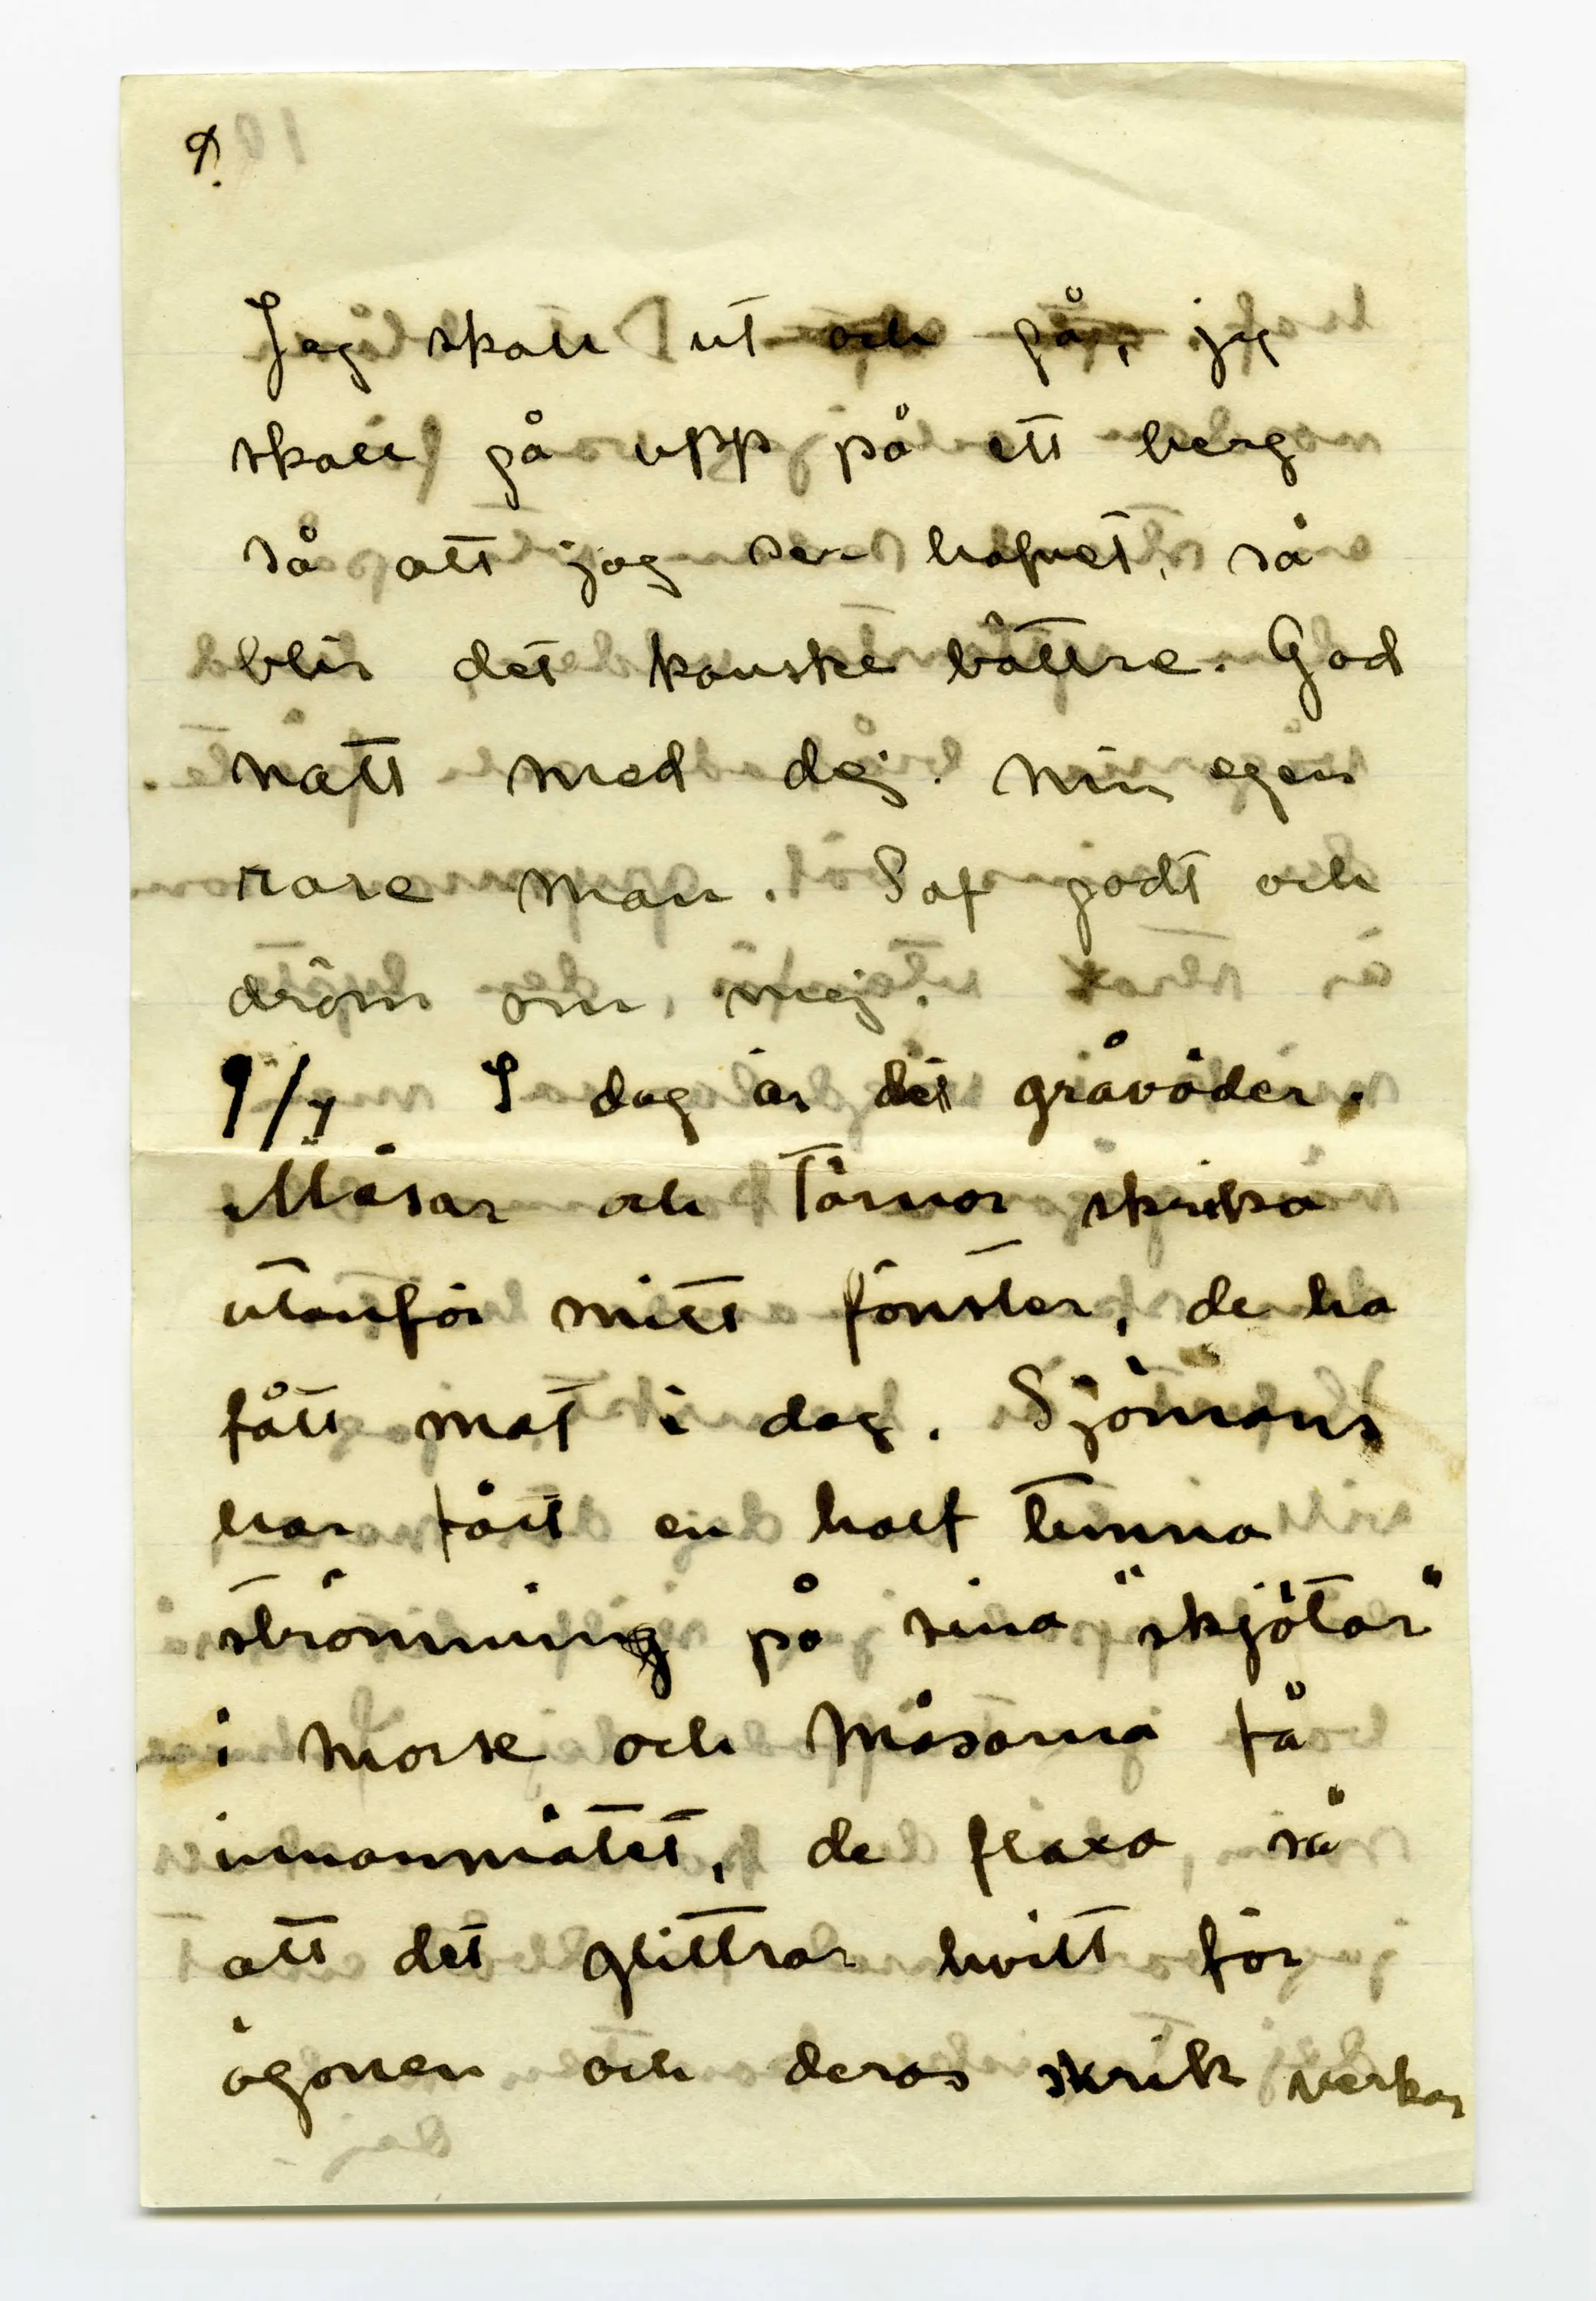 9.
Jag skall ut och gå, jag
skall gå upp på ett berg
så att jag ser hafvet, så
blir det kanske bättre. God
natt med dej. Min egen
rare man. Sof godt och
dröm om mej.
9/7 I dag är det gråväder.
Måsar och Tärnor skrika
utanför mitt fönster, de ha
fått mat i dag. Sjömans
har fått en half tunna
strömming på sina "skjötar"
i morse och måsarna få
innanmätet, de flaxa så
att det glittrar hvitt för
ögonen och deras skrik verkar